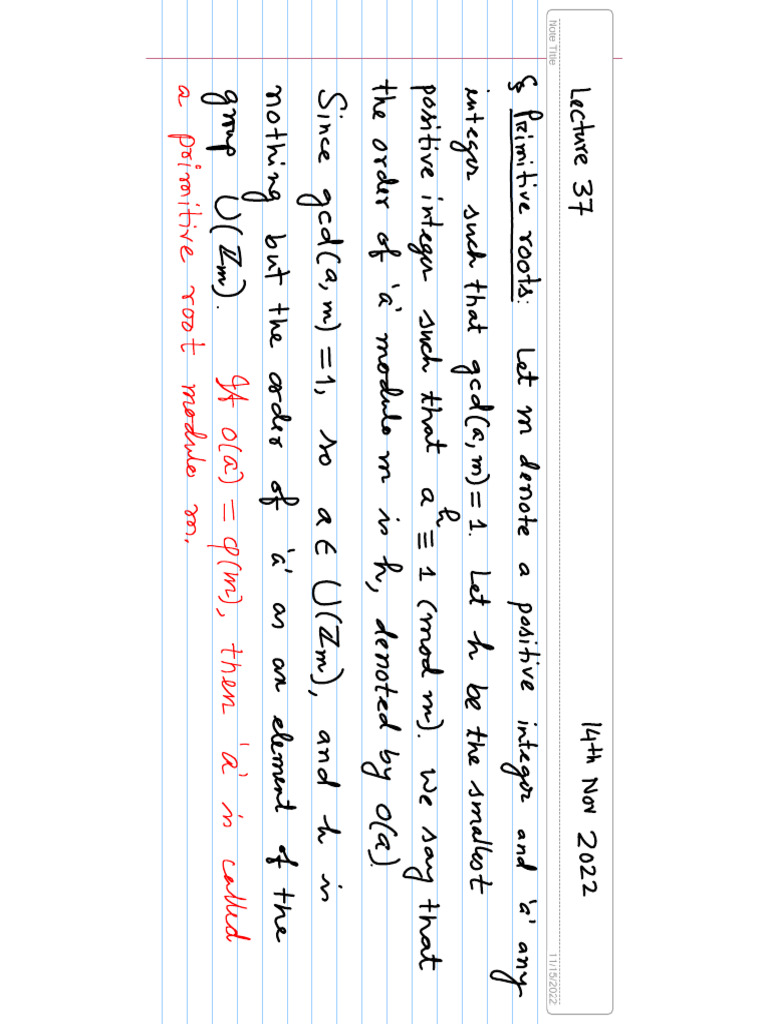 Note Title
11/15/2022
Lecture 37
14th Nov 2022
§ Primitive roots: Let m denote a positive integer and 'a' any
integer such that gcd(a,m)=1. Let h be the smallest
positive integer such that a^h ≡ 1 (mod m). We say that
the order of 'a' modulo m is h, denoted by o(a).
Since gcd(a,m)=1, so a ∈ U(ℤm), and h is
nothing but the order of 'a' as an element of the
group U(ℤm). If o(a) = φ(m), then 'a' is called
a primitive root modulo m.